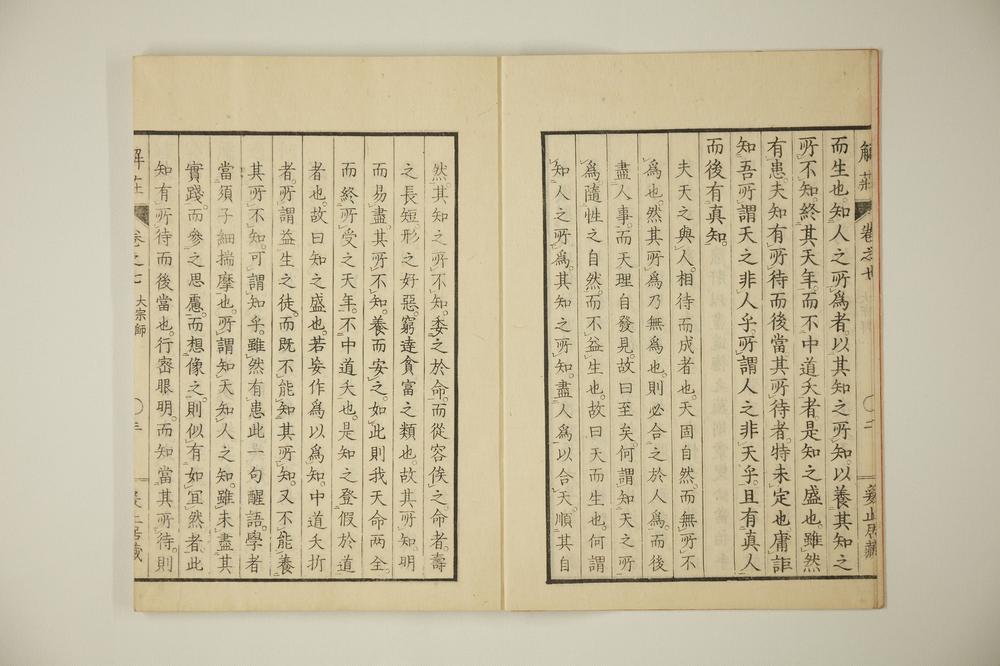 解莊 卷之七 二
而生也。知人之所爲者。以其知之所知。以養其知之
所不知。終其天年。而不中道夭者。是知之盛也。雖然
有患。夫知有所待而後當。其所待者。特未定也。庸詎
知吾所謂天之非人乎。所謂人之非天乎。且有真人
而後有真知。
夫天之與人。相待而成者也。天固自然。而無所不
爲也。然其所爲乃無爲也。則必合之於人爲。而後
盡人事。而天理自發見。故曰至矣。何謂知天之所
爲。隨性之自然。而不益生也。故曰天而生也。何謂
知人之所爲。其知之所知。盡人爲以合天。順其自
然。其知之所不知。委之於命。而從容俟之。命者。壽
之長短。形之好惡。窮達貪富之類也。故其所知。明
而易盡。其所不知。養而安之。如此則我天命兩全。
而終所受之天年。不中道夭也。是知之登假於道
者也。故曰知之盛也。若妄作爲以爲知。中道夭折
者。所謂益生之徒。而既不能知其所知。又不能養
其所不知。可謂知乎。雖然有患此一句醒語。學者
當須子細揣摩也。所謂知天知人之知。雖未盡其
實踐。而參之思慮。而想像之。則似有如冝然者。此
知有所待而後當也。行密眼明。而知當其所待。則
解莊 卷之七 大宗師 三